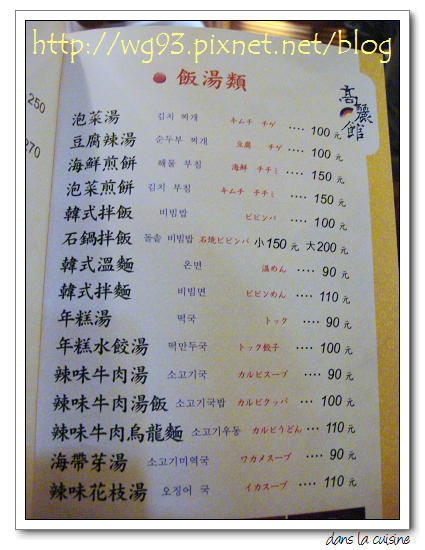 http://wg93.pixnet.net/blog
飯湯類
高麗館
250
270
泡菜湯 김치 찌개 キムチ チゲ ‥‥ 100 元
豆腐辣湯 순두부 찌개 豆腐 チゲ ‥‥ 100 元
海鮮煎餅 해물 부침 海鮮 チヂミ ‥‥ 150 元
泡菜煎餅 김치 부침 キムチ チヂミ ‥‥ 150 元
韓式拌飯 비빔밥 ビビンバ ‥‥ 100 元
石鍋拌飯 돌솥 비빔밥 石焼ビビンバ 小150 元 大200 元
韓式溫麵 온면 温めん ‥‥ 90 元
韓式拌麵 비빔면 ビビンめん ‥‥ 110 元
年糕湯 떡국 トック ‥‥ 90 元
年糕水餃湯 떡만두국 トック餃子 ‥‥ 100 元
辣味牛肉湯 소고기국 カルビスープ ‥‥ 90 元
辣味牛肉湯飯 소고기국밥 カルビクッパ ‥‥ 100 元
辣味牛肉烏龍麵 소고기우동 カルビうどん ‥‥ 110 元
海帶芽湯 소고기미역국 ワカメスープ ‥‥ 90 元
辣味花枝湯 오징어 국 イカスープ ‥‥ 110 元
dans la cuisine